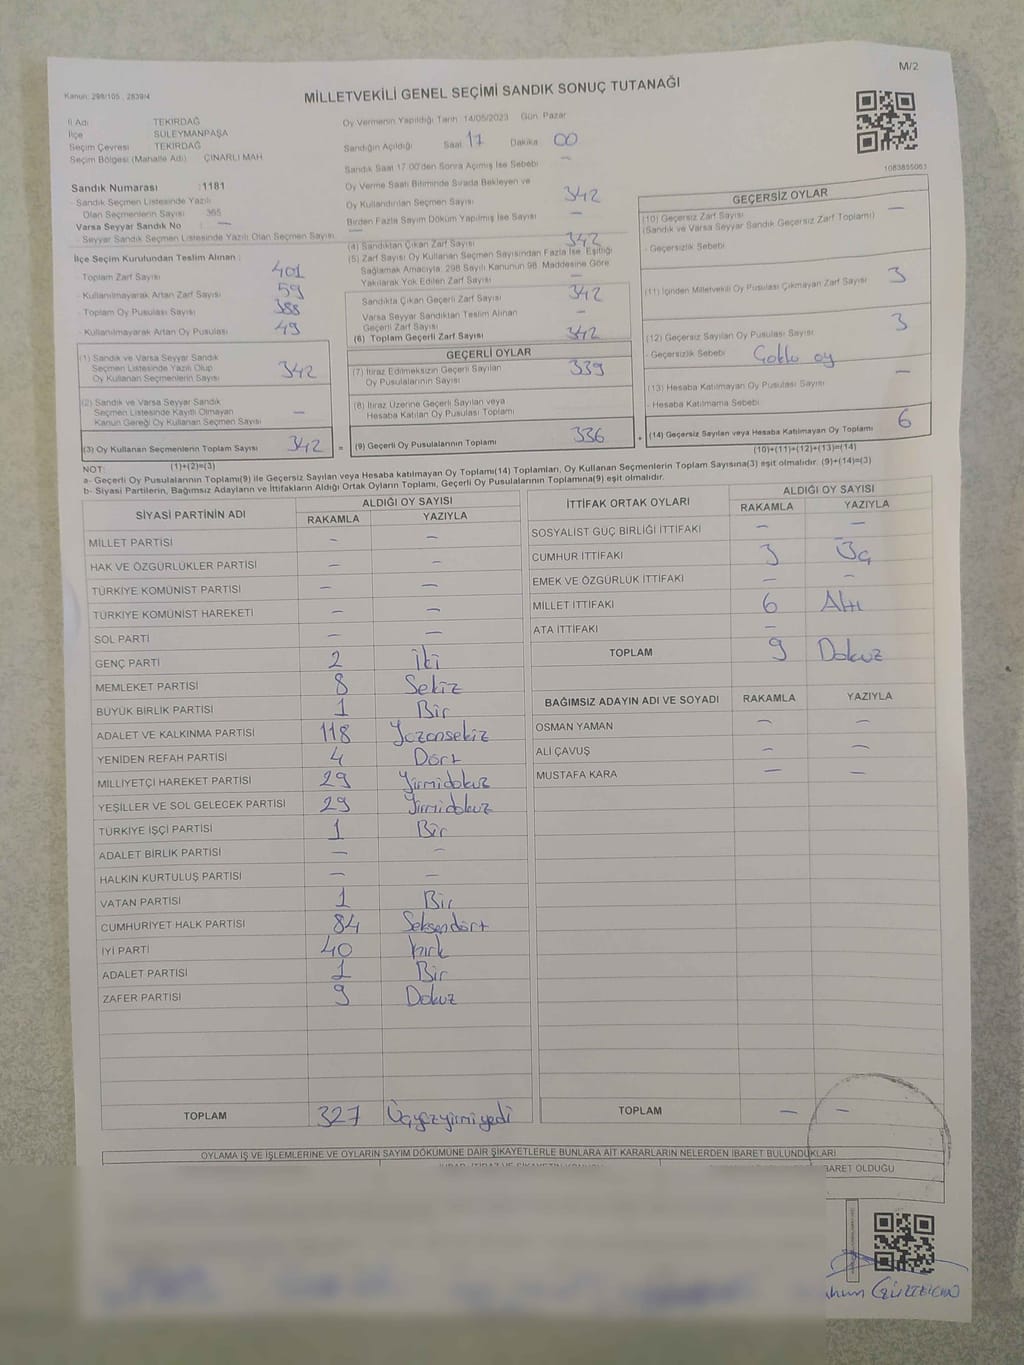 M/2
Kanun: 298/105 , 2839/4
MİLLETVEKİLİ GENEL SEÇİMİ SANDIK SONUÇ TUTANAĞI
İl Adı TEKİRDAĞ
İlçe SÜLEYMANPAŞA
Seçim Çevresi TEKİRDAĞ
Seçim Bölgesi (Mahalle Adı) ÇINARLI MAH
Sandık Numarası :1181
Sandık Seçmen Listesinde Yazılı
Olan Seçmenlerin Sayısı 365
Varsa Seyyar Sandık No —
Seyyar Sandık Seçmen Listesinde Yazılı Olan Seçmen Sayısı —
İlçe Seçim Kurulundan Teslim Alınan :
- Toplam Zarf Sayısı 401
- Kullanılmayarak Artan Zarf Sayısı 59
- Toplam Oy Pusulası Sayısı 388
- Kullanılmayarak Artan Oy Pusulası 49
(1) Sandık ve Varsa Seyyar Sandık
Seçmen Listesinde Yazılı Olup
Oy Kullanan Seçmenlerin Sayısı 342
(2) Sandık ve Varsa Seyyar Sandık
Seçmen Listesinde Kayıtlı Olmayan
Kanun Gereği Oy Kullanan Seçmen Sayısı —
(3) Oy Kullanan Seçmenlerin Toplam Sayısı 342 =
(1)+(2)=(3)
Oy Vermenin Yapıldığı Tarih :14/05/2023 Gün: Pazar
Sandığın Açıldığı Saat 17 Dakika 00
Sandık Saat 17:00'den Sonra Açılmış İse Sebebi —
Oy Verme Saati Bitiminde Sırada Bekleyen ve
Oy Kullandırılan Seçmen Sayısı 342
Birden Fazla Sayım Döküm Yapılmış İse Sayısı —
(4) Sandıktan Çıkan Zarf Sayısı 342
(5) Zarf Sayısı Oy Kullanan Seçmen Sayısından Fazla İse, Eşitliği
Sağlamak Amacıyla, 298 Sayılı Kanunun 98. Maddesine Göre
Yakılarak Yok Edilen Zarf Sayısı —
Sandıkta Çıkan Geçerli Zarf Sayısı 342
Varsa Seyyar Sandıktan Teslim Alınan
Geçerli Zarf Sayısı —
(6) Toplam Geçerli Zarf Sayısı 342
GEÇERLİ OYLAR
(7) İtiraz Edilmeksizin Geçerli Sayılan
Oy Pusulalarının Sayısı 339
(8) İtiraz Üzerine Geçerli Sayılan veya
Hesaba Katılan Oy Pusulası Toplamı
(9) Geçerli Oy Pusulalarının Toplamı 336 +
1083855063
GEÇERSİZ OYLAR
(10) Geçersiz Zarf Sayısı —
(Sandık ve Varsa Seyyar Sandık Geçersiz Zarf Toplamı)
- Geçersizlik Sebebi
(11) İçinden Milletvekili Oy Pusulası Çıkmayan Zarf Sayısı 3
(12) Geçersiz Sayılan Oy Pusulası Sayısı 3
- Geçersizlik Sebebi Çoklu oy
(13) Hesaba Katılmayan Oy Pusulası Sayısı —
- Hesaba Katılmama Sebebi
(14) Geçersiz Sayılan veya Hesaba Katılmayan Oy Toplamı 6
(10)+(11)+(12)+(13)=(14)
NOT:
a- Geçerli Oy Pusulalarının Toplamı(9) ile Geçersiz Sayılan veya Hesaba katılmayan Oy Toplamı(14) Toplamları, Oy Kullanan Seçmenlerin Toplam Sayısına(3) eşit olmalıdır. (9)+(14)=(3)
b- Siyasi Partilerin, Bağımsız Adayların ve İttifakların Aldığı Ortak Oyların Toplamı, Geçerli Oy Pusulalarının Toplamına(9) eşit olmalıdır.
SİYASİ PARTİNİN ADI ALDIĞI OY SAYISI
RAKAMLA YAZIYLA
MİLLET PARTİSİ — —
HAK VE ÖZGÜRLÜKLER PARTİSİ — —
TÜRKİYE KOMÜNİST PARTİSİ — —
TÜRKİYE KOMÜNİST HAREKETİ — —
SOL PARTİ — —
GENÇ PARTİ 2 iki
MEMLEKET PARTİSİ 8 Sekiz
BÜYÜK BİRLİK PARTİSİ 1 Bir
ADALET VE KALKINMA PARTİSİ 118 Yüzonsekiz
YENİDEN REFAH PARTİSİ 4 Dört
MİLLİYETÇİ HAREKET PARTİSİ 29 Yirmidokuz
YEŞİLLER VE SOL GELECEK PARTİSİ 29 Yirmidokuz
TÜRKİYE İŞÇİ PARTİSİ 1 Bir
ADALET BİRLİK PARTİSİ — —
HALKIN KURTULUŞ PARTİSİ — —
VATAN PARTİSİ 1 Bir
CUMHURİYET HALK PARTİSİ 84 Seksendört
İYİ PARTİ 40 kırk
ADALET PARTİSİ 1 Bir
ZAFER PARTİSİ 9 Dokuz
TOPLAM 327 Üçyüzyirmiyedi
İTTİFAK ORTAK OYLARI ALDIĞI OY SAYISI
RAKAMLA YAZIYLA
SOSYALİST GÜÇ BİRLİĞİ İTTİFAKI — —
CUMHUR İTTİFAKI 3 Üç
EMEK VE ÖZGÜRLÜK İTTİFAKI — —
MİLLET İTTİFAKI 6 Altı
ATA İTTİFAKI —
TOPLAM 9 Dokuz
BAĞIMSIZ ADAYIN ADI VE SOYADI RAKAMLA YAZIYLA
OSMAN YAMAN — —
ALİ ÇAVUŞ — —
MUSTAFA KARA — —
TOPLAM — —
OYLAMA İŞ VE İŞLEMLERİNE VE OYLARIN SAYIM DÖKÜMÜNE DAİR ŞİKAYETLERLE BUNLARA AİT KARARLARIN NELERDEN İBARET BULUNDUKLARI
BARET OLDUĞU